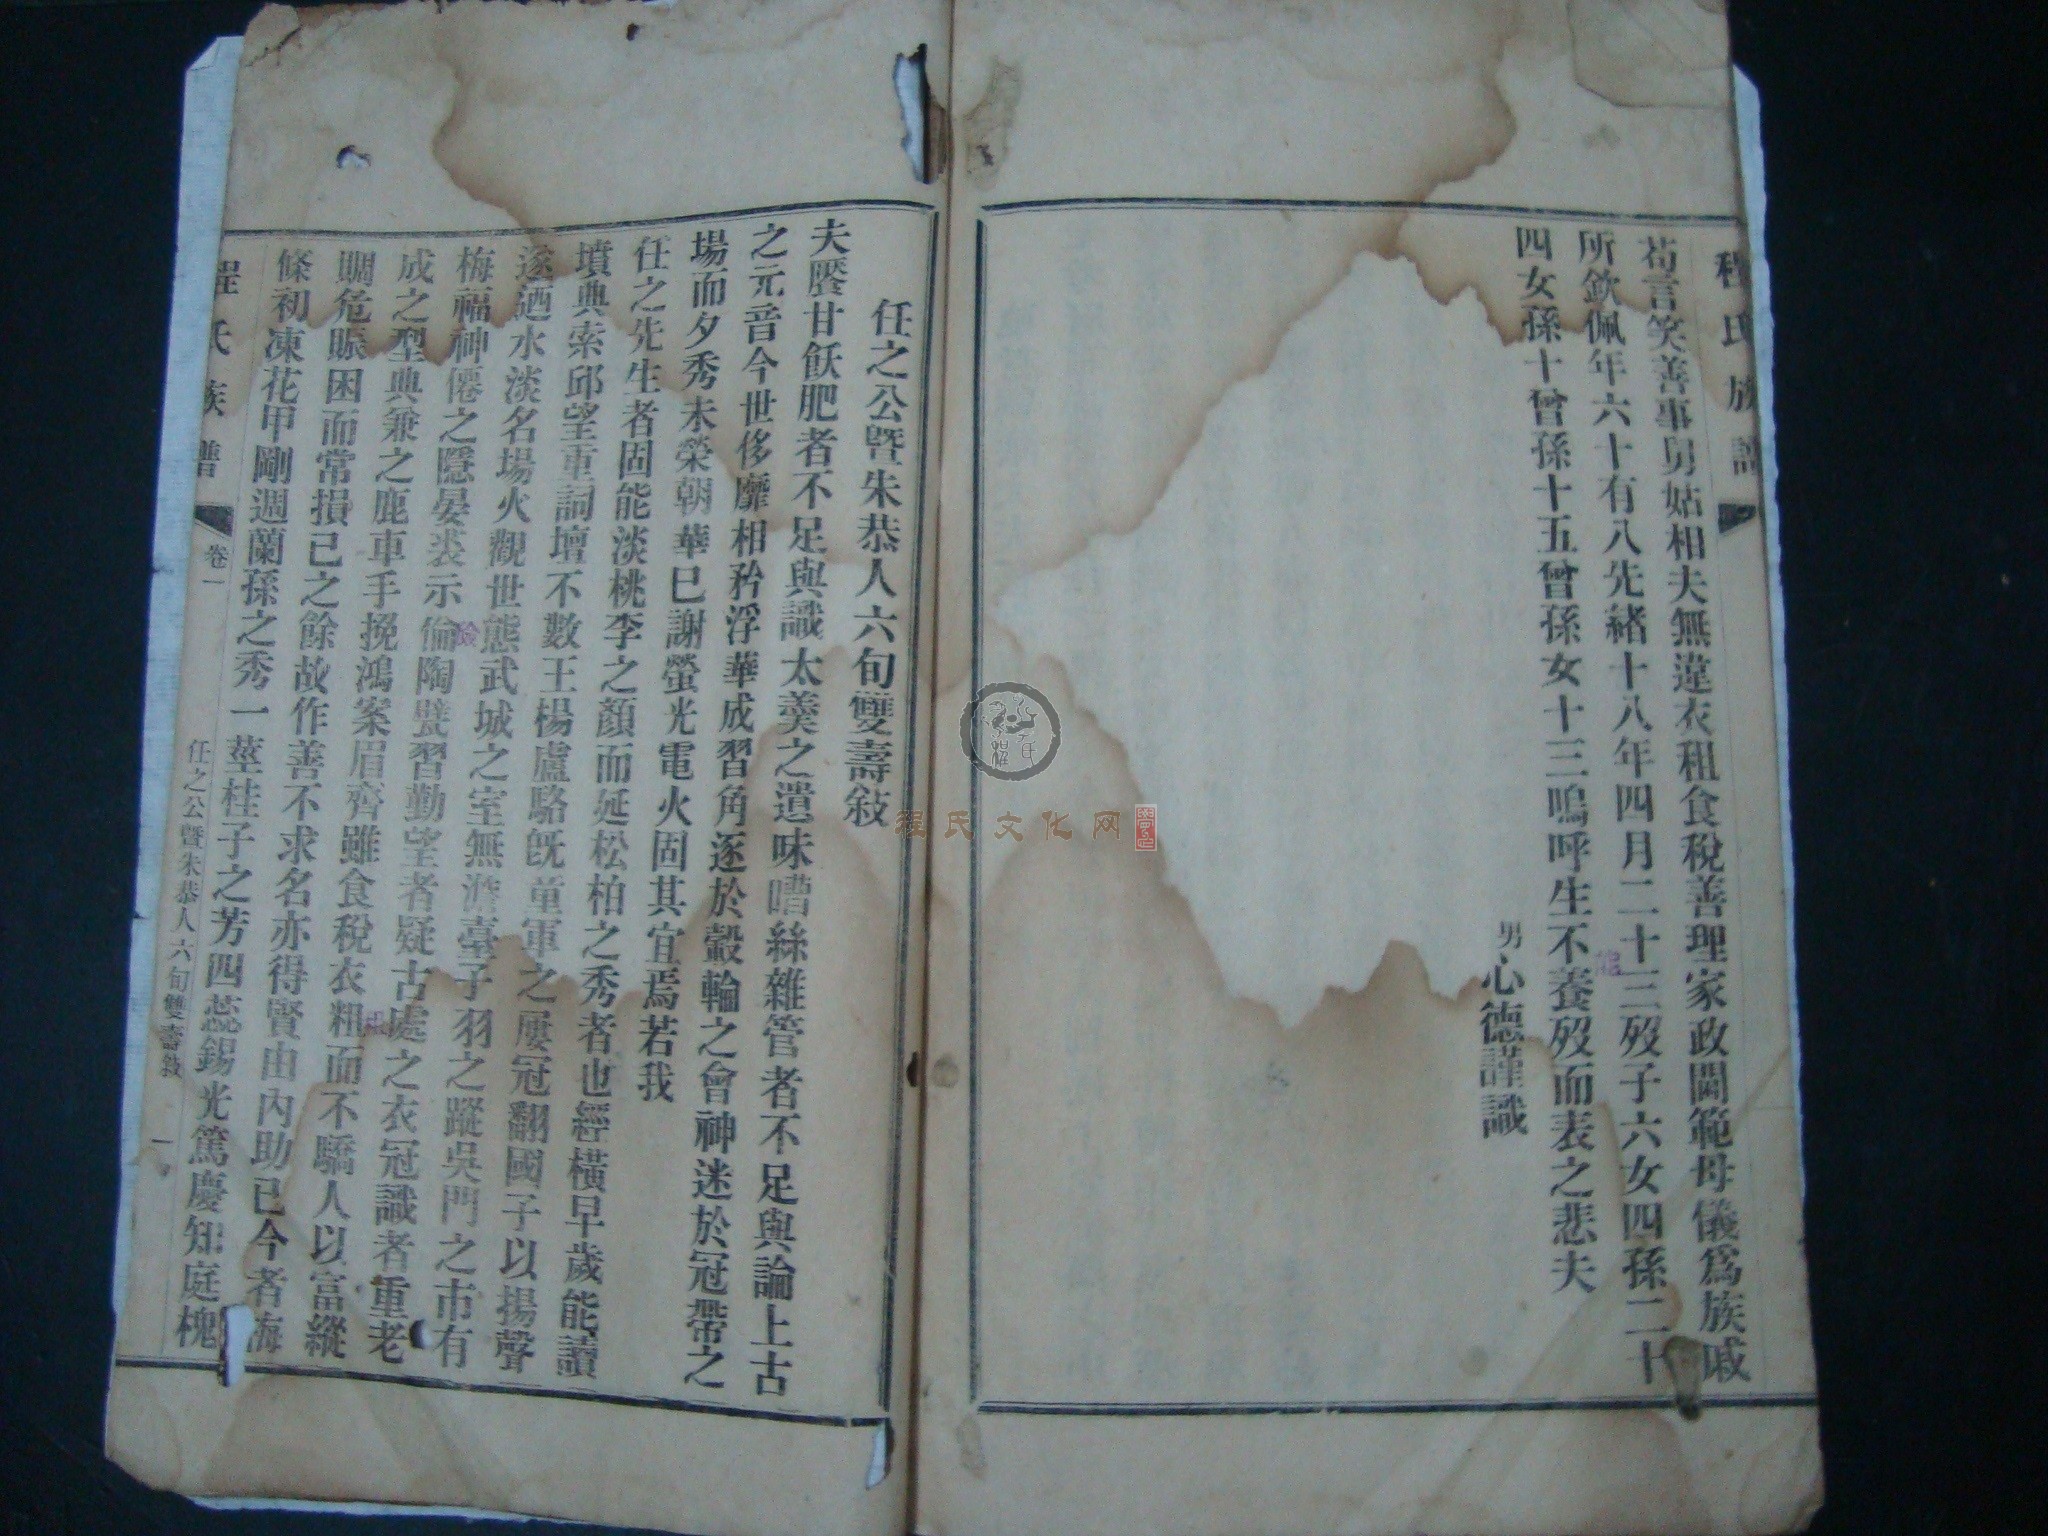 程氏族譜
苟言笑善事舅姑相夫無違衣租食稅善理家政閫範母儀爲族戚
所欽佩年六十有八先緒十八年四月二十三歿子六女四孫二十
四女孫十曾孫十五曾孫女十三嗚呼生不養歿而表之悲夫
能
男心德謹識
任之公暨朱恭人六旬雙壽敍
夫饜甘飫肥者不足與識太羹之遺味嘈絲雜管者不足與論上古
之元音今世侈靡相矜浮華成習角逐於轂輪之會神迷於冠帶之
場而夕秀未榮朝華已謝螢光電火固其宜焉若我
任之先生者固能淡桃李之顏而延松柏之秀者也經橫早歲能讀
墳典索邱望重詞壇不數王楊盧駱旣童軍之屢冠翻國子以揚聲
遂迺水淡名場火觀世態武城之室無澹臺子羽之蹤吳門之市有
梅福神僊之隱晏裘示儉陶甓習勤望者疑古處之衣冠識者重老
成之型典兼之鹿車手挽鴻案眉齊雖食稅衣粗而不驕人以富縱
賙危賑困而常損已之餘故作善不求名亦得賢由內助已今者海
條初凍花甲剛週蘭孫之秀一莖桂子之芳四蕊錫光篤慶知庭槐
程氏族譜
卷一
任之公暨朱恭人六旬雙壽敍
一
程氏文化网